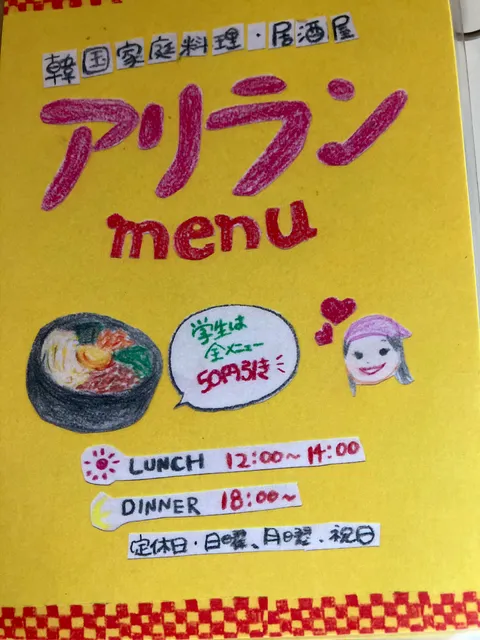 韓国家庭料理・居酒屋
アリラン
menu
学生は
全メニュー
50円引き
LUNCH 12:00~14:00
DINNER 18:00~
定休日・日曜、月曜、祝日